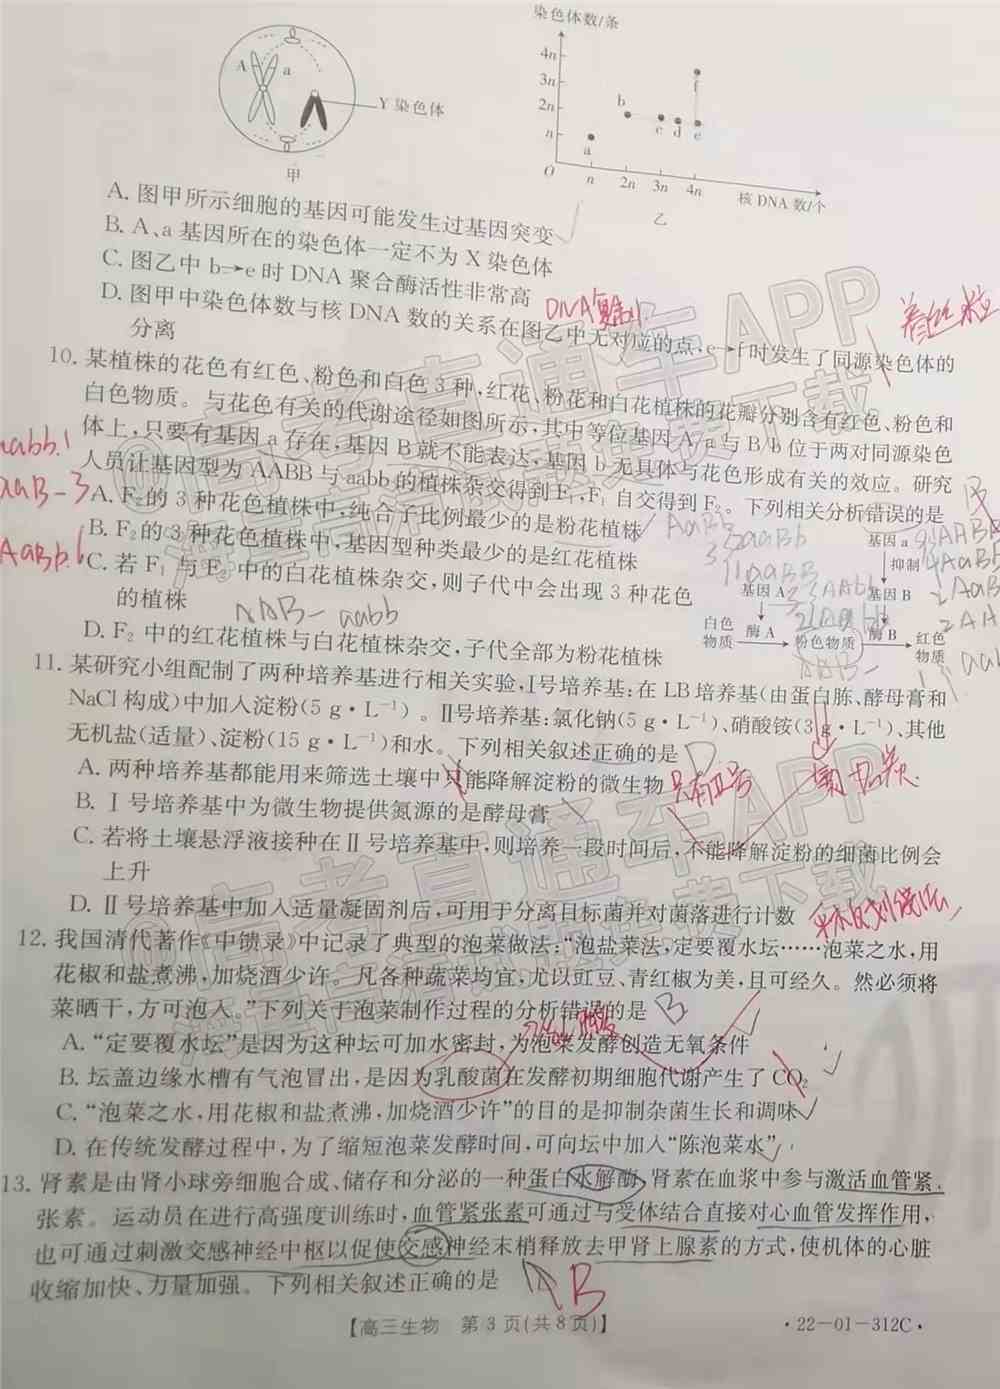 染色体数/条
4n
3n
2n
n
O
n
2n
3n
4n
a
b
c
d
e
f
核 DNA 数/个
乙
A
a
Y 染色体
甲
A. 图甲所示细胞的基因可能发生过基因突变
B. A、a 基因所在的染色体一定不为 X 染色体
C. 图乙中 b→e 时 DNA 聚合酶活性非常高
D. 图甲中染色体数与核 DNA 数的关系在图乙中无对应的点,e→f 时发生了同源染色体的
分离
DNA复制
着丝粒
10. 某植株的花色有红色、粉色和白色 3 种,红花、粉花和白花植株的花瓣分别含有红色、粉色和
白色物质。与花色有关的代谢途径如图所示,其中等位基因 A/a 与 B/b 位于两对同源染色
体上,只要有基因 a 存在,基因 B 就不能表达,基因 b 无具体与花色形成有关的效应。研究
人员让基因型为 AABB 与 aabb 的植株杂交得到 F₁,F₁ 自交得到 F₂。下列相关分析错误的是
A. F₂的 3 种花色植株中,纯合子比例最少的是粉花植株
B. F₂的 3 种花色植株中,基因型种类最少的是红花植株
C. 若 F₁ 与 F₂ 中的白花植株杂交,则子代中会出现 3 种花色
的植株
D. F₂ 中的红花植株与白花植株杂交,子代全部为粉花植株
aabb.1
aaB-3
AaBb.6
AAB- aabb
基因 a
抑制
基因 A
基因 B
白色
物质
酶 A
粉色物质
酶 B
红色
物质
AAB-
11. 某研究小组配制了两种培养基进行相关实验,Ⅰ号培养基:在 LB 培养基(由蛋白胨、酵母膏和
NaCl 构成)中加入淀粉(5 g·L⁻¹)。Ⅱ号培养基:氯化钠(5 g·L⁻¹)、硝酸铵(3 g·L⁻¹)、其他
无机盐(适量)、淀粉(15 g·L⁻¹)和水。下列相关叙述正确的是 D
A. 两种培养基都能用来筛选土壤中只能降解淀粉的微生物 只有Ⅱ号
B. Ⅰ号培养基中为微生物提供氮源的是酵母膏
C. 若将土壤悬浮液接种在Ⅱ号培养基中,则培养一段时间后,不能降解淀粉的细菌比例会
上升
D. Ⅱ号培养基中加入适量凝固剂后,可用于分离目标菌并对菌落进行计数 平板划线法
12. 我国清代著作《中馈录》中记录了典型的泡菜做法:“泡盐菜法,定要覆水坛……泡菜之水,用
花椒和盐煮沸,加烧酒少许。凡各种蔬菜均宜,尤以豇豆、青红椒为美,且可经久。然必须将
菜晒干,方可泡入。”下列关于泡菜制作过程的分析错误的是 B
A. “定要覆水坛”是因为这种坛可加水密封,为泡菜发酵创造无氧条件
B. 坛盖边缘水槽有气泡冒出,是因为乳酸菌在发酵初期细胞代谢产生了 CO₂
C. “泡菜之水,用花椒和盐煮沸,加烧酒少许”的目的是抑制杂菌生长和调味
D. 在传统发酵过程中,为了缩短泡菜发酵时间,可向坛中加入“陈泡菜水”
13. 肾素是由肾小球旁细胞合成、储存和分泌的一种蛋白水解酶,肾素在血浆中参与激活血管紧
张素。运动员在进行高强度训练时,血管紧张素可通过与受体结合直接对心血管发挥作用,
也可通过刺激交感神经中枢以促使交感神经末梢释放去甲肾上腺素的方式,使机体的心脏
收缩加快、力量加强。下列相关叙述正确的是 B
【高三生物 第 3 页(共 8 页)】
·22-01-312C·
@高考直通车APP
海量高清试题免费下载
@高考直通车APP
海量高清试题免费下载